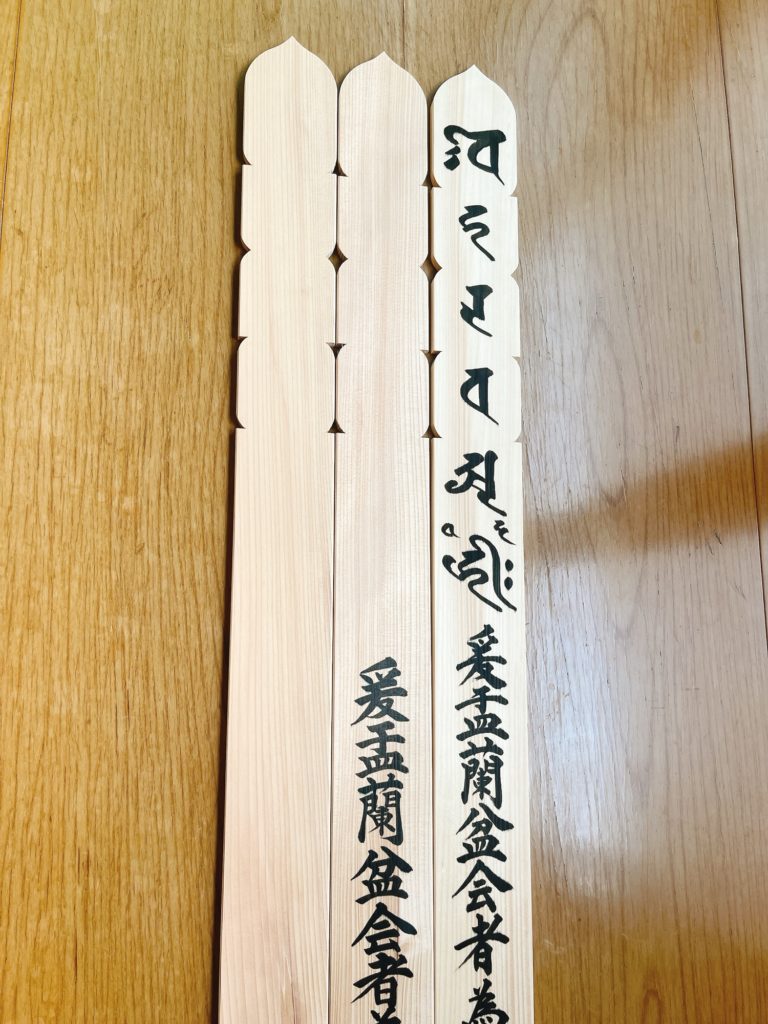 𑖏𑖮𑖨𑖪𑖀𑖮𑖿𑖨𑖱𑖾爰盂蘭盆会者為
爰盂蘭盆会者